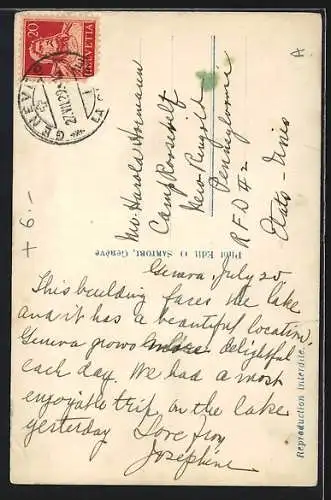 20
HELVETIA
GENÈVE
Mr. Harold Hormann
Camp Roosevelt
New Ringold
Pennsylvania
R F D # 2
Etats-Unis
Phot Edit O. SARTORI, Genève
+ 6.-
Geneva, July 20,
This building faces the lake
and it has a beautiful location.
Geneva grows more delightful
each day. We had a most
enjoyable trip on the lake
yesterday Love from
Josephine
Reproduction Interdite.